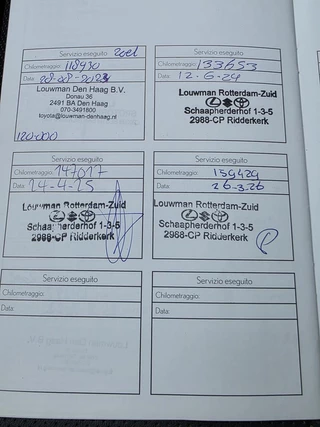 Servizio eseguito
Chilometraggio: 118930
Data:
Louwman Den Haag B.V.
Donau 36
2491 BA Den Haag
070-3491800
toyota@louwman-denhaag.nl
120.000
Servizio eseguito
Chilometraggio: 133653
Data: 12-6-24
Louwman Rotterdam-Zuid
Schaapherderhof 1-3-5
2988-CP Ridderkerk
Servizio eseguito
Chilometraggio: 147017
Data: 14-4-25
Louwman Rotterdam-Zuid
Schaapherderhof 1-3-5
2988-CP Ridderkerk
Servizio eseguito
Chilometraggio: 159429
Data: 26-3-26
Louwman Rotterdam-Zuid
Schaapherderhof 1-3-5
2988-CP Ridderkerk
Servizio eseguito
Chilometraggio:
Data:
Servizio eseguito
Chilometraggio:
Data: